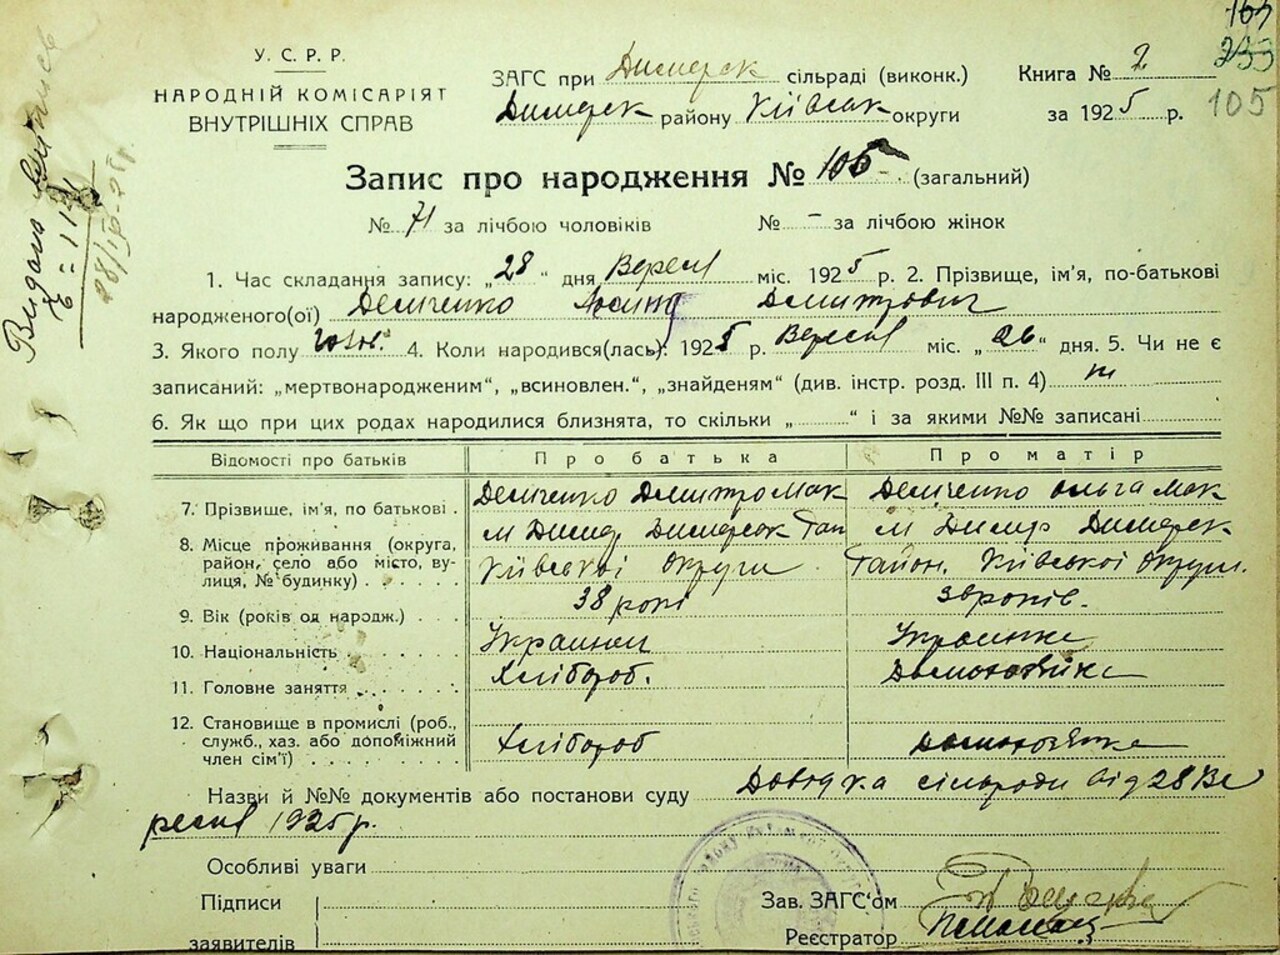 У. С. Р. Р.
НАРОДНІЙ КОМІСАРІЯТ
ВНУТРІШНІХ СПРАВ
ЗАГС при Димерск сільраді (виконк.)
Димерск району Київськ округи
Книга № 2
за 1925 р.
105
Запис про народження № 105 (загальний)
№ 71 за лічбою чоловіків № - за лічбою жінок
1. Час складання запису: „28“ дня Вересня міс. 1925 р. 2. Прізвище, ім'я, по-батькові
народженого(ої) Демченко Дмитрович
3. Якого полу чол. 4. Коли народився(лась): 1925 р. Вересня міс. „26“ дня. 5. Чи не є
записаний: „мертвонародженим“, „всиновлен.“, „знайденям“ (див. інстр. розд. III п. 4)
6. Як що при цих родах народилися близнята, то скільки „ “ і за якими №№ записані
Відомості про батьків Про батька Про матір
7. Прізвище, ім'я, по батькові . Демченко Дмитро Мак Демченко Ольга Мак
8. Місце проживання (округа, район, село або місто, вулиця, № будинку) м Димер Димерск Рай Київської Округи м Димер Димерск Район. Київської Округи.
9. Вік (років од народж.) 38 рокі років.
10. Національність Украинец Украинка
11. Головне заняття Хлібороб. Домогозяйка
12. Становище в промислі (роб., служб., хаз. або допоміжний член сім'ї) Хлібороб
Назви й №№ документів або постанови суду Довідка сільради від 28 Ве
ресня 1925 р.
Особливі уваги
Підписи
заявителів
Зав. ЗАГС'ом
Реєстратор
Видана